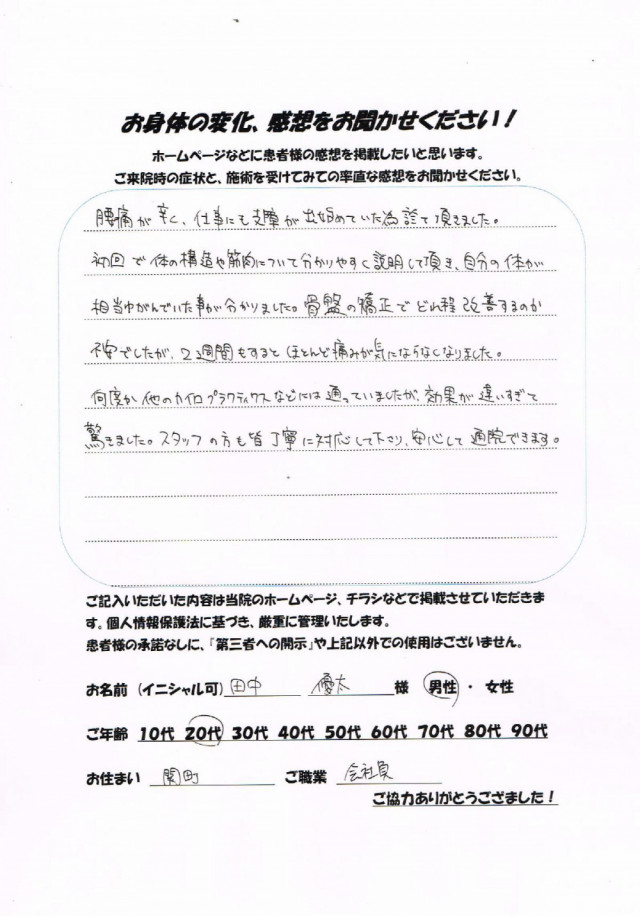 お身体の変化、感想をお聞かせください!
ホームページなどに患者様の感想を掲載したいと思います。
ご来院時の症状と、施術を受けてみての率直な感想をお聞かせください。
腰痛が辛く、仕事にも支障が出始めていた為診て頂きました。
初回で体の構造や筋肉について分かりやすく説明して頂き、自分の体が
相当ゆがんでいた事が分かりました。骨盤の矯正でどれ程改善するのか
不安でしたが、2週間もするとほとんど痛みが気にならなくなりました。
何度か他のカイロプラクティクスなどには通っていましたが、効果が違いすぎて
驚きました。スタッフの方も皆丁寧に対応して下さり、安心して通院できます。
ご記入いただいた内容は当院のホームページ、チラシなどで掲載させていただきま
す。個人情報保護法に基づき、厳重に管理いたします。
患者様の承諾なしに、「第三者への開示」や上記以外での使用はございません。
お名前(イニシャル可) 田中 優太 様 男性・女性
ご年齢 10代 20代 30代 40代 50代 60代 70代 80代 90代
お住まい 関町 ご職業 会社員
ご協力ありがとうござました!